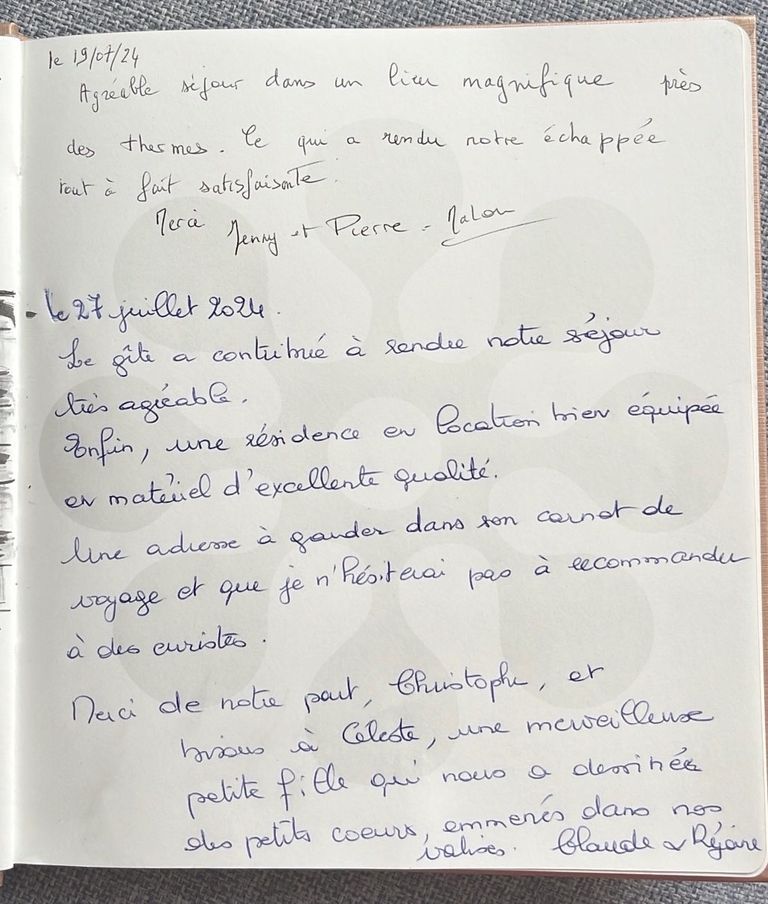 le 19/07/24
Agréable séjour dans un lieu magnifique près
des thermes. Ce qui a rendu notre échappée
tout à fait satisfaisante.
Merci Jenny et Pierre - Malou
- le 27 juillet 2024.
Le gîte a contribué à rendre notre séjour
très agréable.
Enfin, une résidence en location bien équipée
en matériel d'excellente qualité.
Une adresse à garder dans son carnet de
voyage et que je n'hésiterai pas à recommander
à des curistes.
Merci de notre part, Christophe, et
bisous à Céleste, une merveilleuse
petite fille qui nous a dessinés
des petits coeurs, emmenés dans nos
valises. Claude &